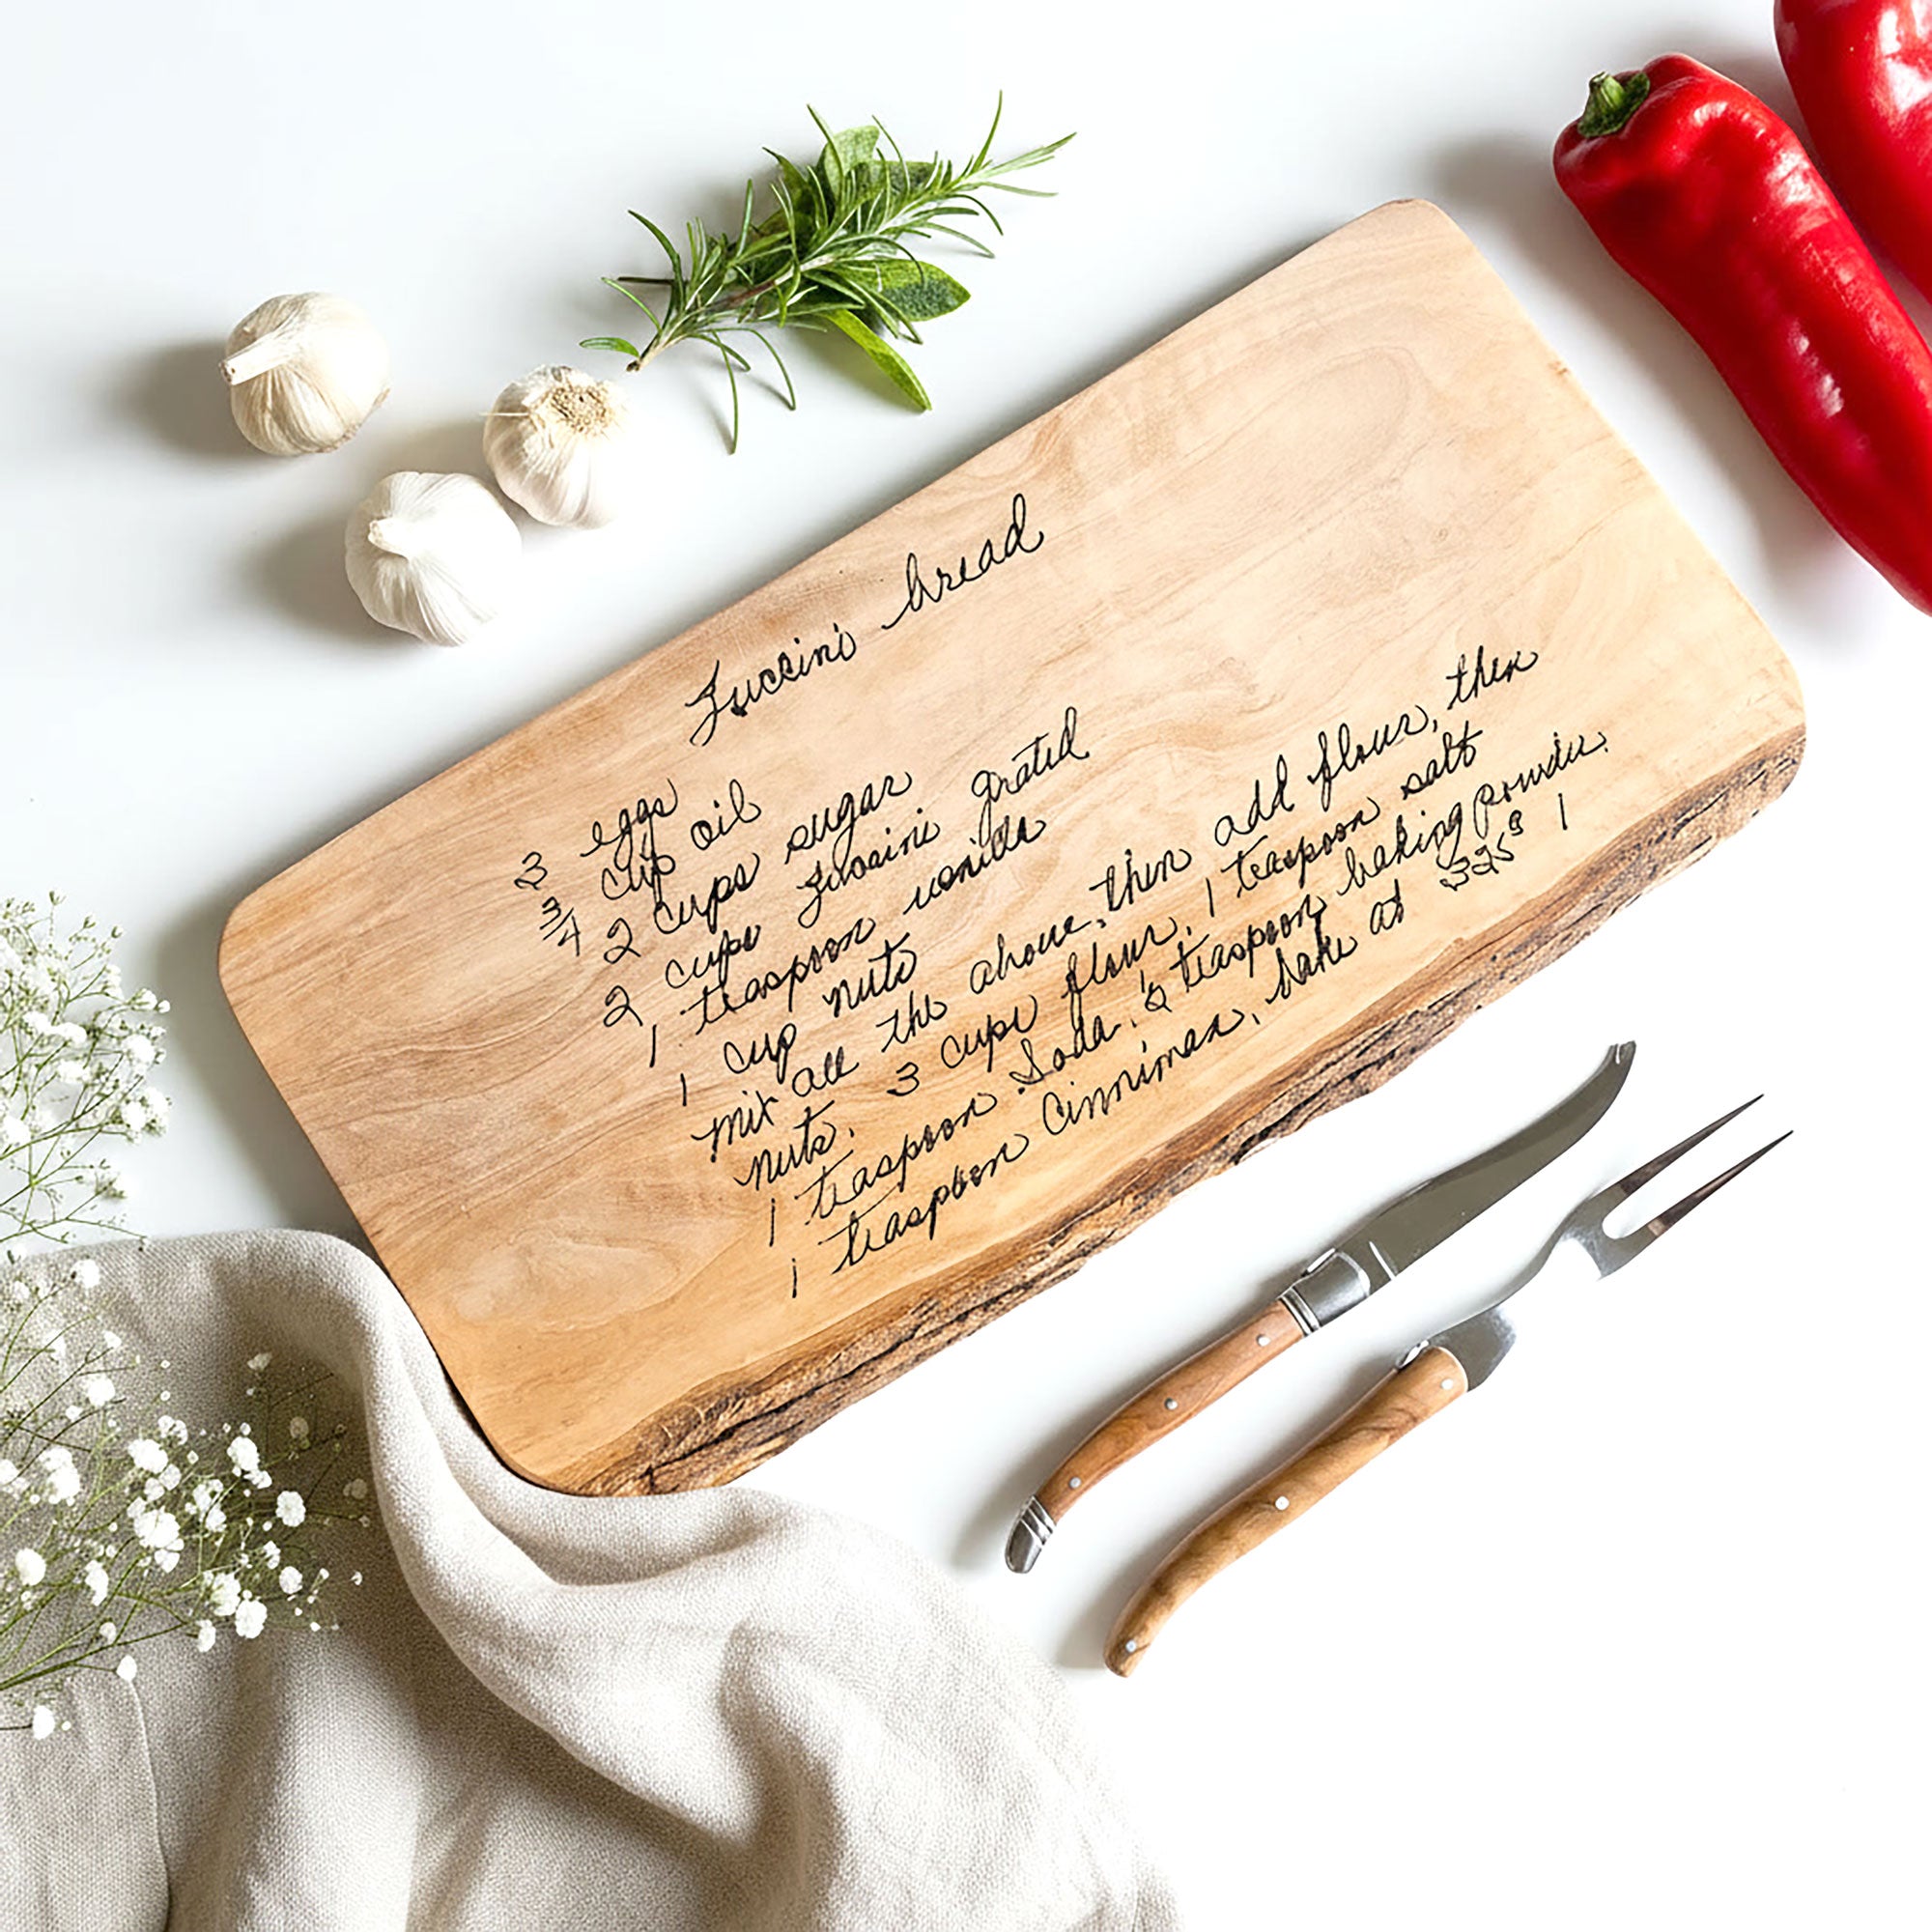 Zuccini bread
3 eggs
3/4 cup oil
2 cups sugar
2 cups zuccini grated
1 teaspoon vanilla
1 cup nuts
mix all the above, then add flour, then
nuts. 3 cups flour, 1 teaspoon salt
1 teaspoon Soda, ½ teaspoon baking powder.
1 teaspoon Cinniman, bake at 325° 1